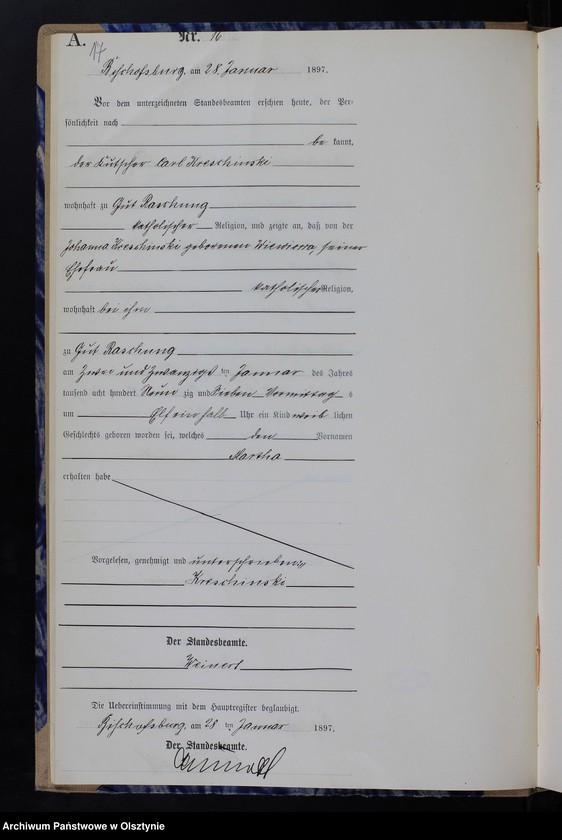 A.
17
Nr. 16
Bischofsburg, am 28. Januar 1897.
Vor dem unterzeichneten Standesbeamten erschien heute, der Per-
sönlichkeit nach
be kannt,
der Kutscher Carl Kreschinski
wohnhaft zu Gut Raschung
katholischer Religion, und zeigte an, daß von der
Johanna Kreschinski geborenen Wiewiorra, seiner
Ehefrau
katholischer Religion,
wohnhaft bei ihm
zu Gut Raschung
am Zwei und Zwanzigsten ten Januar des Jahres
tausend acht hundert Neun zig und Sieben Vormittag s
um Elf ein halb Uhr ein Kind weib lichen
Geschlechts geboren worden sei, welches den Vornamen
Martha
erhalten habe
Vorgelesen, genehmigt und unterschrieben
Kreschinski
Der Standesbeamte.
Weinert
Die Uebereinstimmung mit dem Hauptregister beglaubigt.
Bischofsburg, am 28 ten Januar 1897.
Der Standesbeamte.
Archiwum Państwowe w Olsztynie